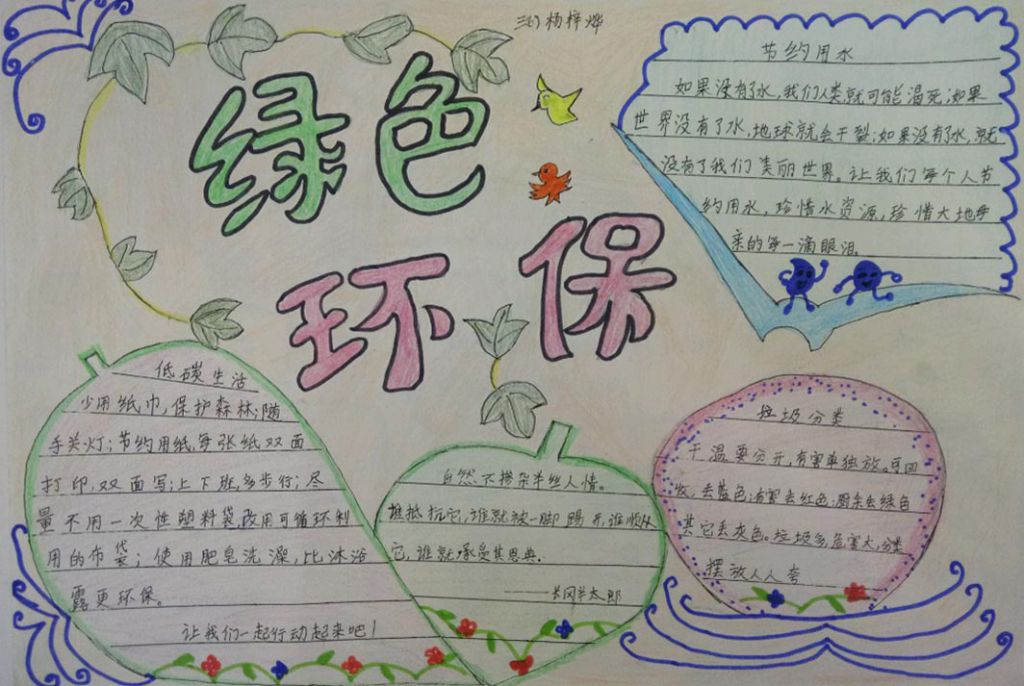 三(1) 杨梓烨
绿色
环保
节约用水
如果没有了水,我们人类就可能渴死;如果
世界没有了水,地球就会干裂;如果没有了水,就
没有了我们美丽世界。让我们每个人节
约用水,珍惜水资源,珍惜大地母
亲的每一滴眼泪。
低碳生活
少用纸巾,保护森林;随
手关灯;节约用纸,每张纸双面
打印,双面写;上下班,多步行;尽
量不用一次性塑料袋,改用可循环利
用的布袋;使用肥皂洗澡,比沐浴
露更环保。
让我们一起行动起来吧!
自然不掺杂半丝人情。
谁抵抗它,谁就被一脚踢开,谁顺从
它,谁就承受其恩典。
——长冈半太郎
垃圾分类
干湿要分开,有害单独放。可回
收,去蓝色;有害去红色;厨余去绿色
其它丢灰色。垃圾多,危害大,分类
摆放人人夸